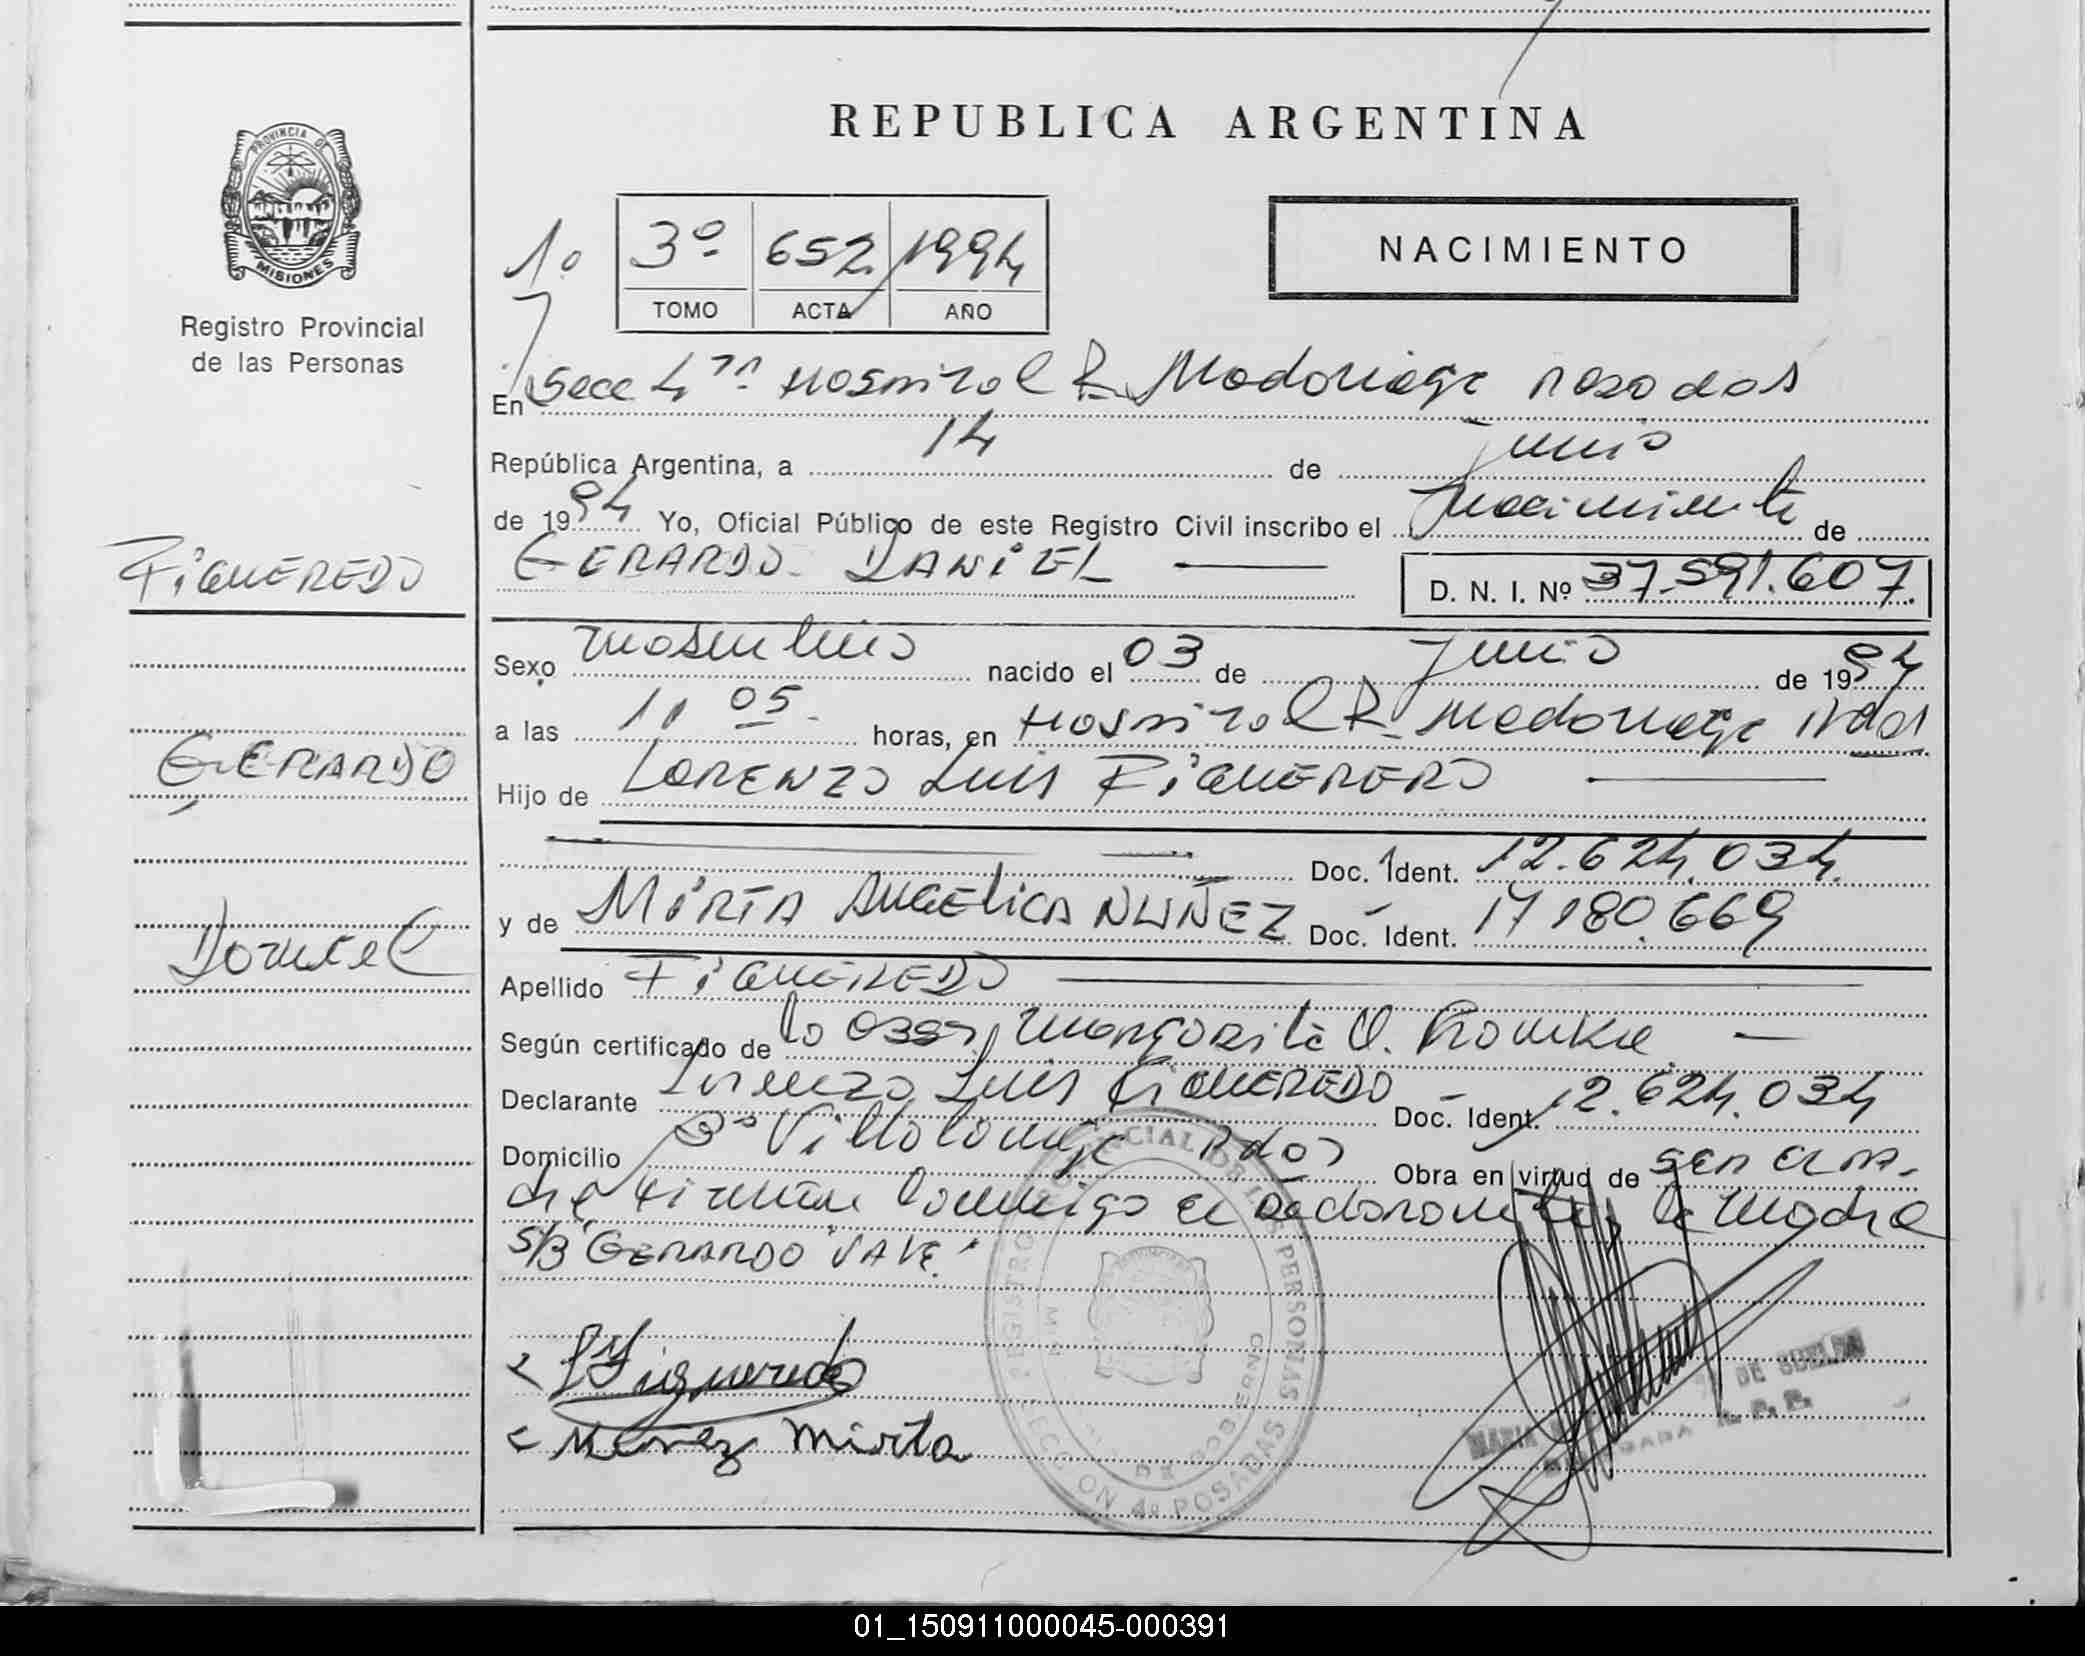 REPUBLICA ARGENTINA
PROVINCIA DE
MISIONES
Registro Provincial
de las Personas
1º
3º 652 1994
TOMO ACTA AÑO
NACIMIENTO
En Secc 4ta Hospital R. Madariaga Posadas
República Argentina, a 14 de junio
de 1994 Yo, Oficial Público de este Registro Civil inscribo el nacimiento de
FIGUEREDO
GERARDO DANIEL
D. N. I. Nº 37.591.607.
Sexo masculino nacido el 03 de junio de 1994
a las 11 05 horas, en Hospital R. Madariaga Pdas
GERARDO
Hijo de LORENZO LUIS FIGUEREDO
Doc. Ident. 12.624.034.
y de MIRTA ANGELICA NUÑEZ Doc. Ident. 17180.669
Daniel
Apellido FIGUEREDO
Según certificado de la Obst. Margarita
Declarante Lorenzo Luis FIGUEREDO Doc. Ident. 12.624.034
Domicilio Bº Villalonga Pdas Obra en virtud de ser el pa-
dre firman conmigo el declarante y la madre
S/B "GERARDO" VALE.
Figueredo
Nuñez Mirta
REGISTRO PROVINCIAL DE LAS PERSONAS
DE GOBIERNO
SECCION 4a POSADAS
MARIA DE
01_150911000045-000391